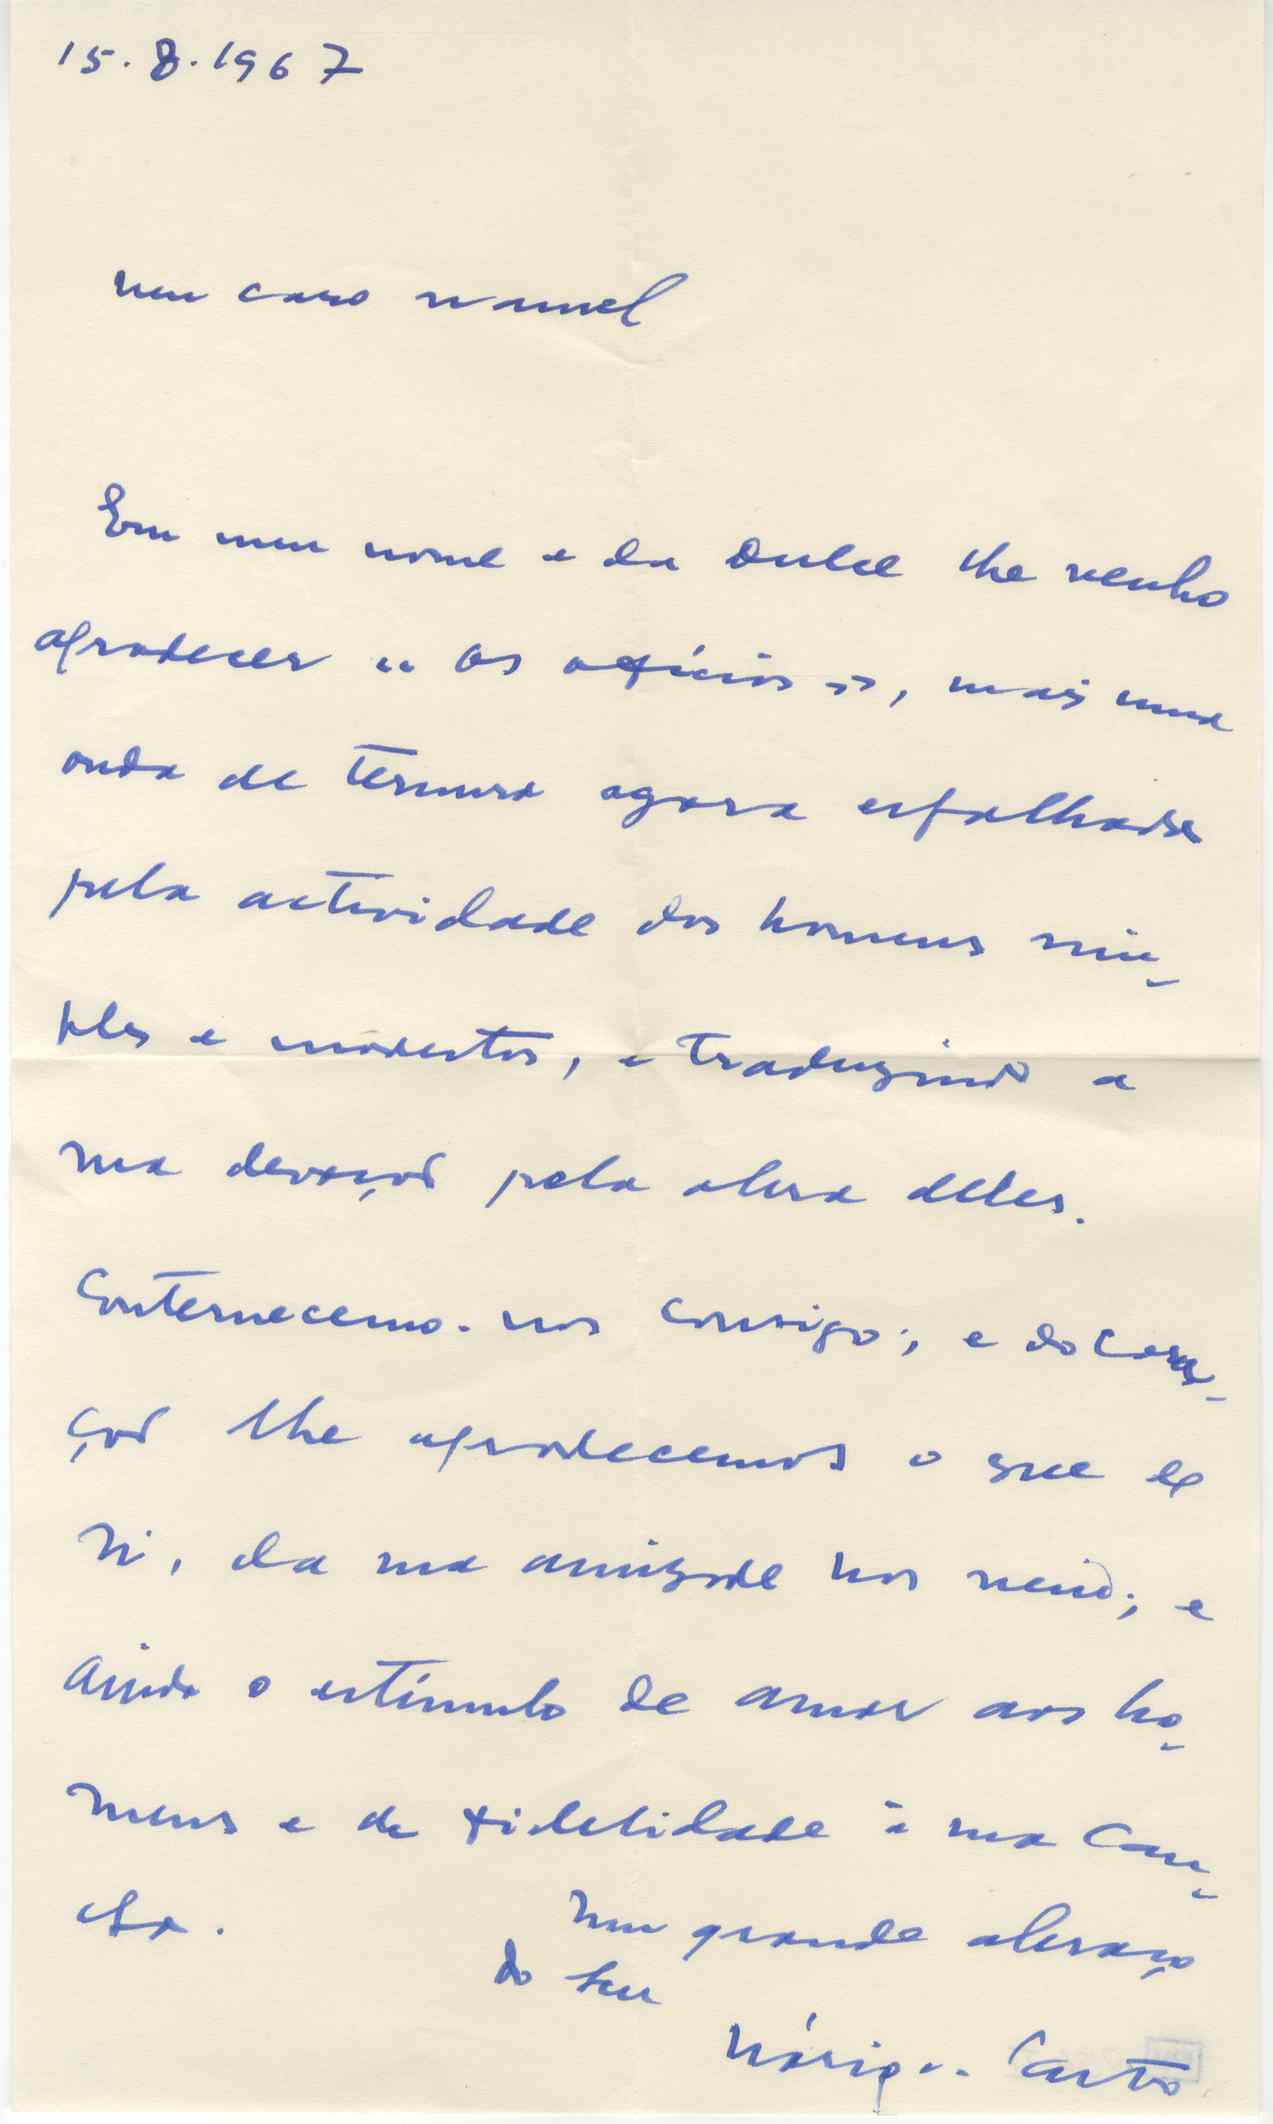 15.8.1967
Meu caro Manuel
Em meu nome e da Dulce lhe venho
agradecer "Os ofícios", mais uma
onda de ternura agora espalhada
pela actividade dos homens sim-
ples e modestos, e traduzindo a
sua devoção pela obra deles.
Conternecemo-nos consigo; e do cora-
ção lhe agradecemos o que de
si, da sua amizade nos veio; e
ainda o estímulo de amor aos ho-
mens e de fidelidade à sua Cau-
sa.
Um grande abraço
do seu
Castro